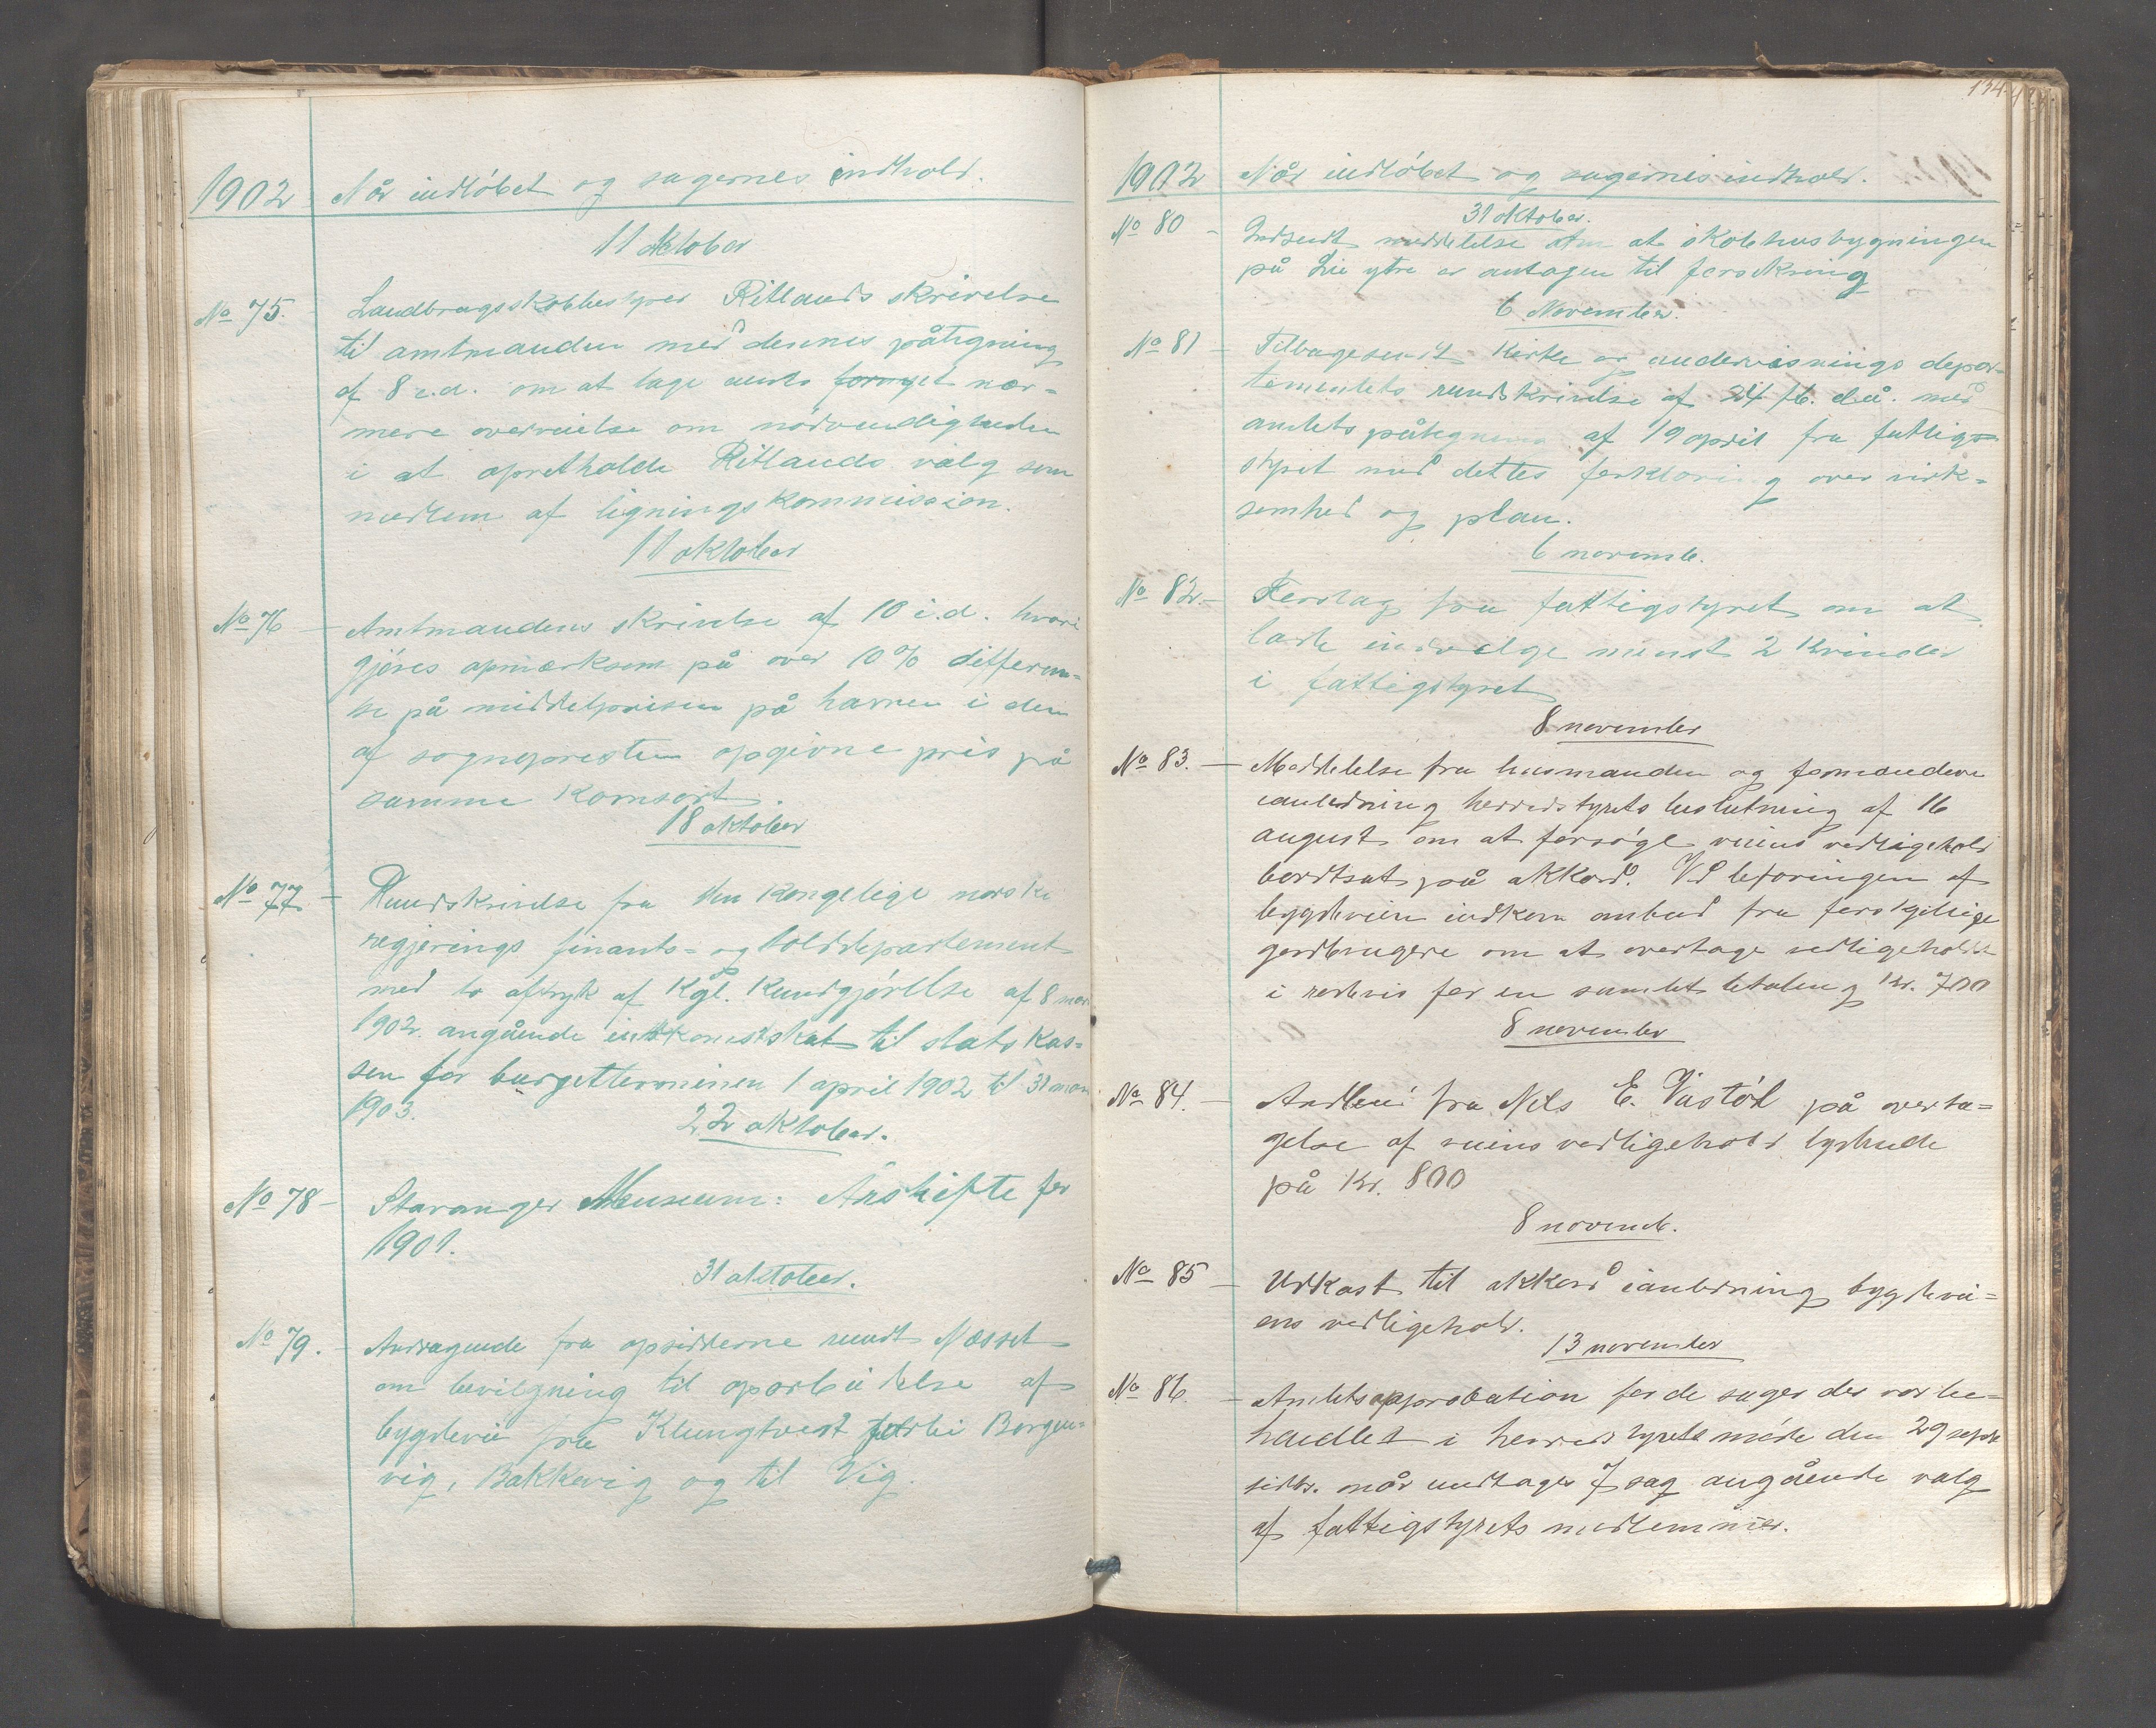 1902 Når indløbet og sagernes indhold.
11 oktober
No 75. Landbrugsskolbestyrer Ritlands skrivelse
til amtmanden med dennes påtegning
af 8 i.d. om at tage under fornyet nær=
mere overveielse om nødvendigheden
i at opretholde Ritlands valg som
medlem af ligningskommission.
11 oktober
No 76 – Amtmandens skrivelse af 10 i.d. hvori
gjøres opmærksom på over 10% differen=
se på middelprisen på havren i den
af sognepresten opgivne pris på
samme kornsort.
18 oktober
No 77 – Rundskrivelse fra den kongelige norske
regjerings finants= og tolddepartement
med to aftryk af Kgl. Kundgjørelse af 8 mar
1902 angående indkomstskat til statskas=
sen for budgetterminen 1 april 1902 til 31 mars
1903.
22 oktober.
No 78 – Stavanger Museum: Årshefte for
1901.
31 oktober.
No 79. – Andragende fra opsidderne rundt Næsset
om bevilgning til oparbeidelse af
bygdevei fra Klungtveit forbi Borgen=
vig, Bakkevig og til Vig.
134
1902 Når indløbet og sagernes indhold.
31 oktober.
No 80 – Indsendt meddelelse om at skolehusbygningen
på Lie ytre er antagen til forsikring
6 November.
No 81 – Tilbagesendt Kirke og undervisnings depar=
tementets rundskrivelse af 24/6. d.å. med
amtets påtegning af 19 april fra fattig=
styret med dettes forklaring over virk=
somhed og plan.
6 novemb.
No 82. – Forslag fra fattigstyret om at
lade indvælge minst 2 Kvinder
i fattigstyret
8 november
No 83. – Meddelelse fra lensmanden og formanden
ianledning herredstyrets beslutning af 16
august om at forsøge veiens vedligehold
bortsat på akkord. Vd befaringen af
bygdeveien indkom anbud fra forskjellige
gardbrugere om at overtage vedligeholdet
i rodevis for en samlet betaling Kr. 700
8 november
No 84. – Anbud fra Nils E. Vastøl på overta=
gelse af veiens vedligehold lydende
på Kr. 800
8 novemb.
No 85 – Udkast til akkord ianledning bygdevei=
ens vedligehold.
13 november
No 86. – Amtets approbation for de sager der var be=
handlet i herredstyrets møde den 29 septr
sidstl. når undtages 7 sag angående valg
af fattigstyrets medlemmer.